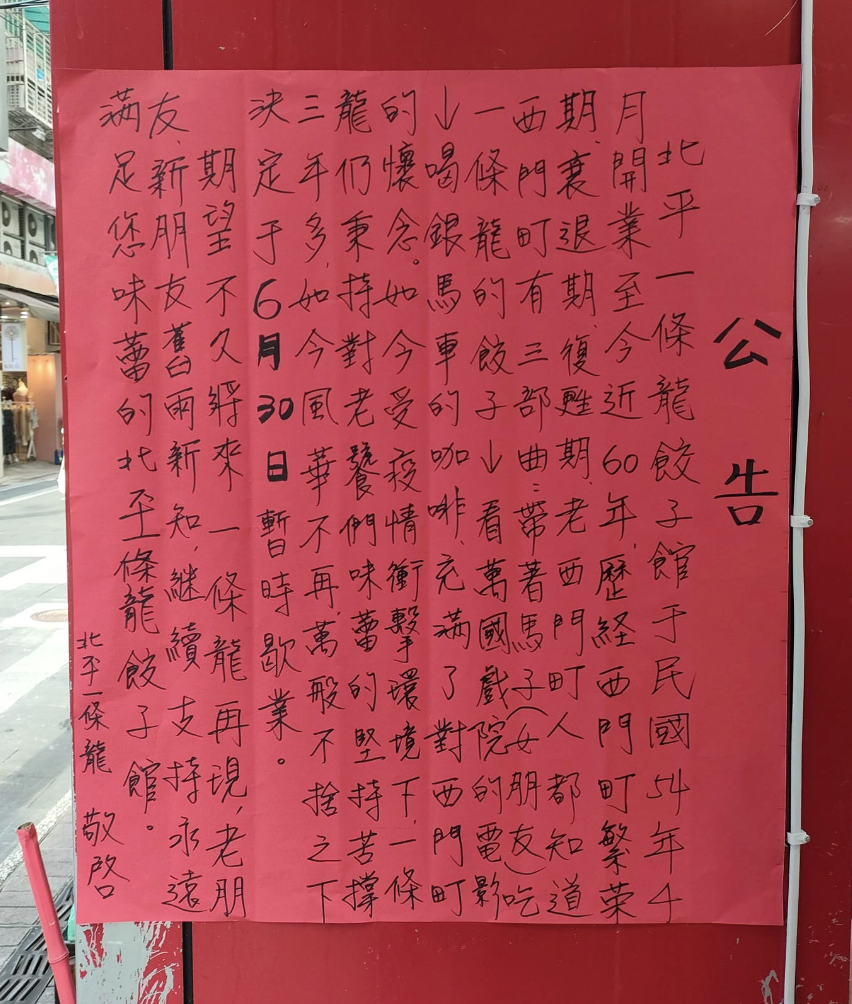 公告
北平一條龍餃子館于民國54年4
月開業至今近60年,歷経西門町繁荣
期、衰退期、復甦期、老西門町人都知道
西門町有三部曲：帶著馬子(女朋友)吃
一條龍的餃子↓看萬國戲院的電影
↓喝銀馬車的咖啡,充滿了對西門町
的懷念。如今受疫情衝擊環境下,一條
龍仍秉持對老饕們味蕾的堅持苦撐
三年多,如今風華不再,萬般不捨之下
決定于6月30日暫時歇業。
期望不久將來一條龍再現,老朋
友、新朋友舊雨新知,継續支持永遠
满足您味蕾的北平一條龍餃子館。
北平一條龍 敬啓